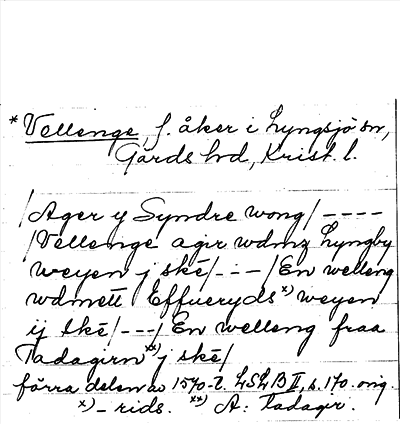 * Vellenge, f. åker i Lyngsjö sn,
Gärds hd, Krist. l.
/Ager ij Syndre wong/ ----
/Vellenge agir wdmz Lyngby
weyen j ské/ --- /En welleng
wdmett Effueryds x) weyen
ij ské/---/ En welleng fraa
Tadagirn xx) j ské/
förra delen av 1570-t. LSLB II, s. 170. orig.
x) - rids. xx) A: Tadagir.